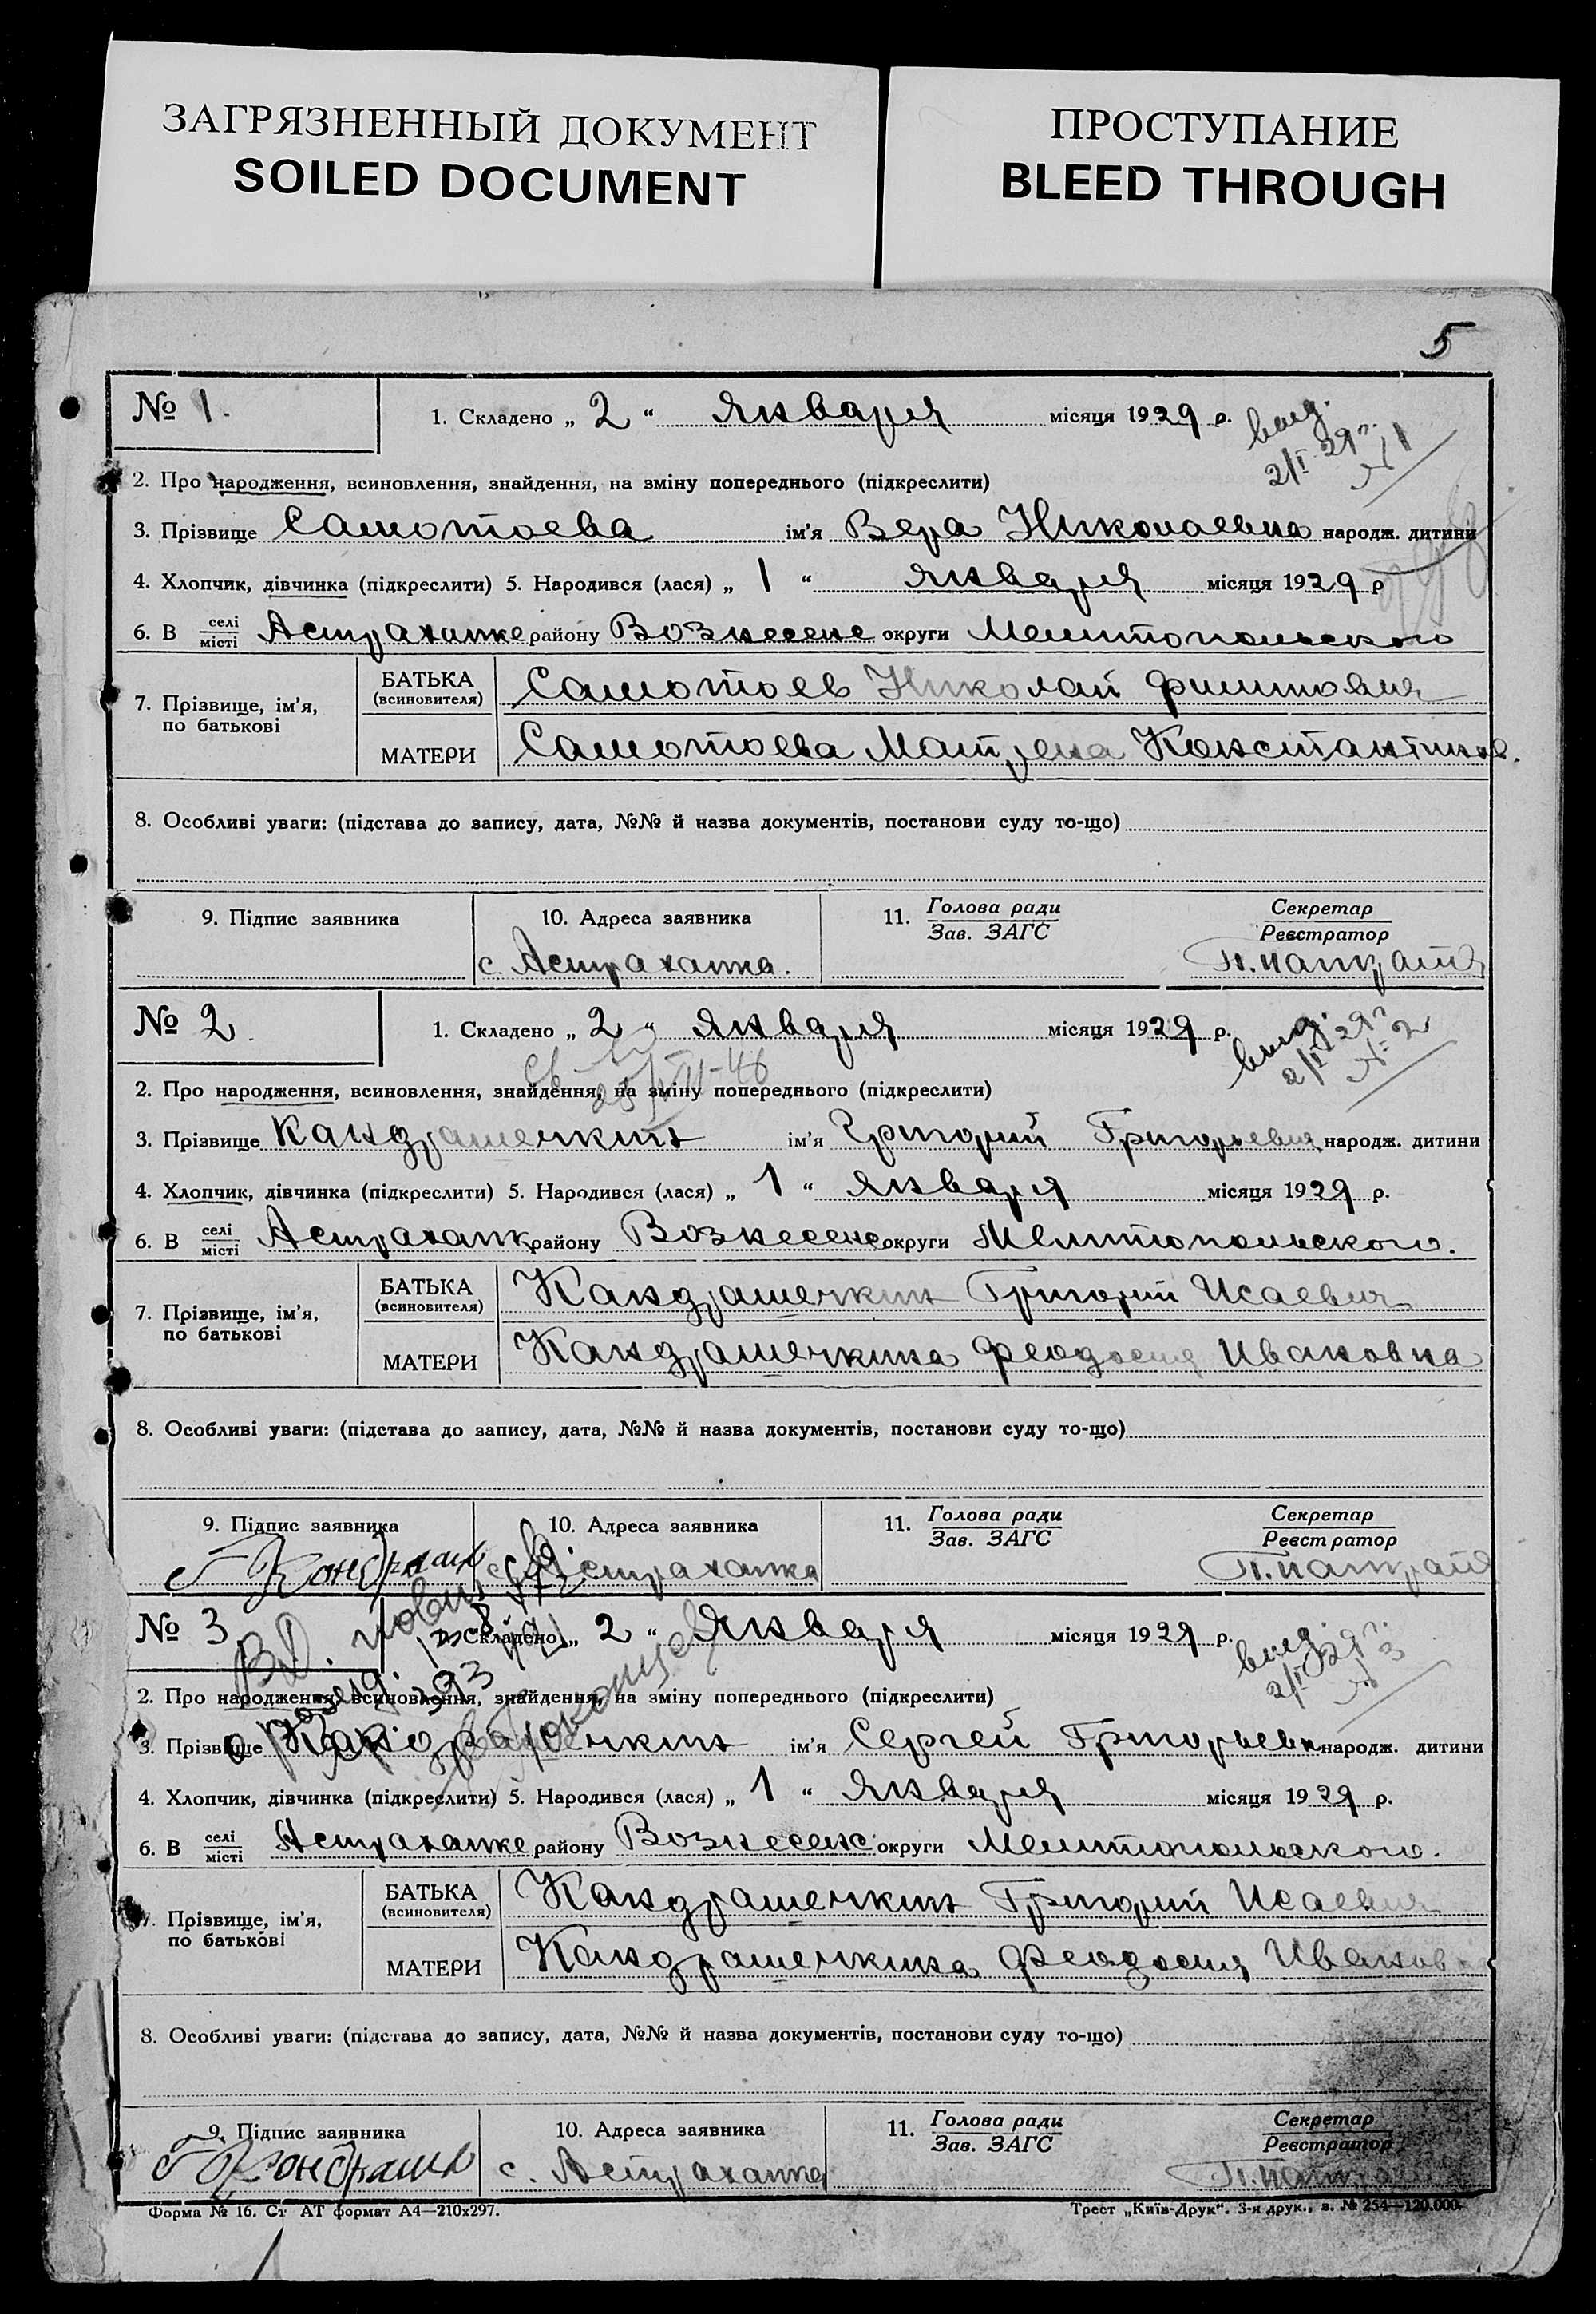 ЗАГРЯЗНЕННЫЙ ДОКУМЕНТ
SOILED DOCUMENT
ПРОСТУПАНИЕ
BLEED THROUGH
5
№ 1.
1. Складено „ 2 “ Января місяця 1929 р.
выд.
2/I 29 г.
№ 1
2. Про народження, всиновлення, знайдення, на зміну попереднього (підкреслити)
3. Прізвище Самотоева ім’я Вера Николаевна народж. дитини
4. Хлопчик, дівчинка (підкреслити) 5. Народився (лася) „ 1 “ января місяця 1929 р
6. В селі місті Астраханке району Вознесенс округи Мелитопольского
7. Прізвище, ім’я, по батькові
БАТЬКА (всиновителя) Самотоев Николай
МАТЕРИ Самотоева Матрена Константинов.
8. Особливі уваги: (підстава до запису, дата, №№ й назва документів, постанови суду то-що)
9. Підпис заявника
10. Адреса заявника
11. Голова ради Зав. ЗАГС
Секретар Реєстратор
с. Астраханка.
№ 2.
1. Складено „ 2 “ Января місяця 1929 р.
выд.
2/I 29 г.
№ 2
2. Про народження, всиновлення, знайдення, на зміну попереднього (підкреслити)
3. Прізвище Кандрашечкин ім’я Григорий Григорьевич народж. дитини
4. Хлопчик, дівчинка (підкреслити) 5. Народився (лася) „ 1 “ Января місяця 1929 р.
6. В селі місті Астраханк району Вознесенс округи Мелитопольского.
7. Прізвище, ім’я, по батькові
БАТЬКА (всиновителя) Кандрашечкин Григорий Исаевич
МАТЕРИ Кандрашечкина Феодосия Ивановна
8. Особливі уваги: (підстава до запису, дата, №№ й назва документів, постанови суду то-що)
9. Підпис заявника
10. Адреса заявника
11. Голова ради Зав. ЗАГС
Секретар Реєстратор
Г Кондраш
с. Астраханка
№ 3
1. Складено „ 2 “ Января місяця 1929 р.
выд.
2/I 29 г.
№ 3
2. Про народження, всиновлення, знайдення, на зміну попереднього (підкреслити)
3. Прізвище Кандрашечкин ім’я Сергей Григорьевич народж. дитини
4. Хлопчик, дівчинка (підкреслити) 5. Народився (лася) „ 1 “ Января місяця 1929 р.
6. В селі місті Астраханке району Вознесенс округи Мелитопольского.
7. Прізвище, ім’я, по батькові
БАТЬКА (всиновителя) Кандрашечкин Григорий Исаевич
МАТЕРИ Кандрашечкина Феодосия Иванов
8. Особливі уваги: (підстава до запису, дата, №№ й назва документів, постанови суду то-що)
9. Підпис заявника
10. Адреса заявника
11. Голова ради Зав. ЗАГС
Секретар Реєстратор
Г Кондраше
с. Астраханка
Форма № 16. Ст АТ формат А4—210x297.
Трест „Київ-Друк“. 3-я друк., з. № 254—120.000.